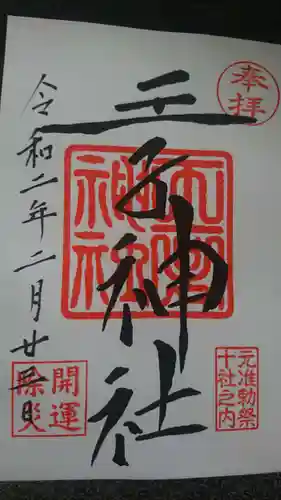 奉拝
元准勅祭
十社之内
王子神社
令和二年二月廿日
開運
除災